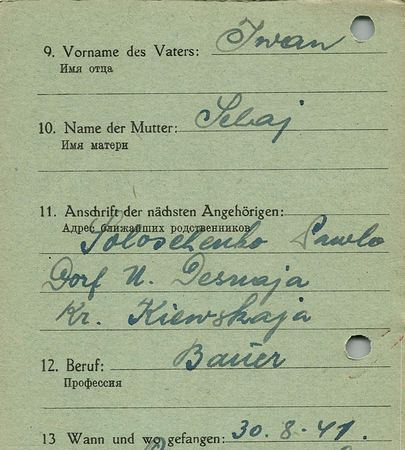 9. Vorname des Vaters: Iwan
Имя отца
10. Name der Mutter: Sebaj
Имя матери
11. Anschrift der nächsten Angehörigen:
Адрес ближайших родственников
Soloschenko Pawlo
Dorf N. Desnaja
Kr. Kiewskaja
12. Beruf: Bauer
Профессия
13 Wann und wo gefangen: 30. 8. 41.